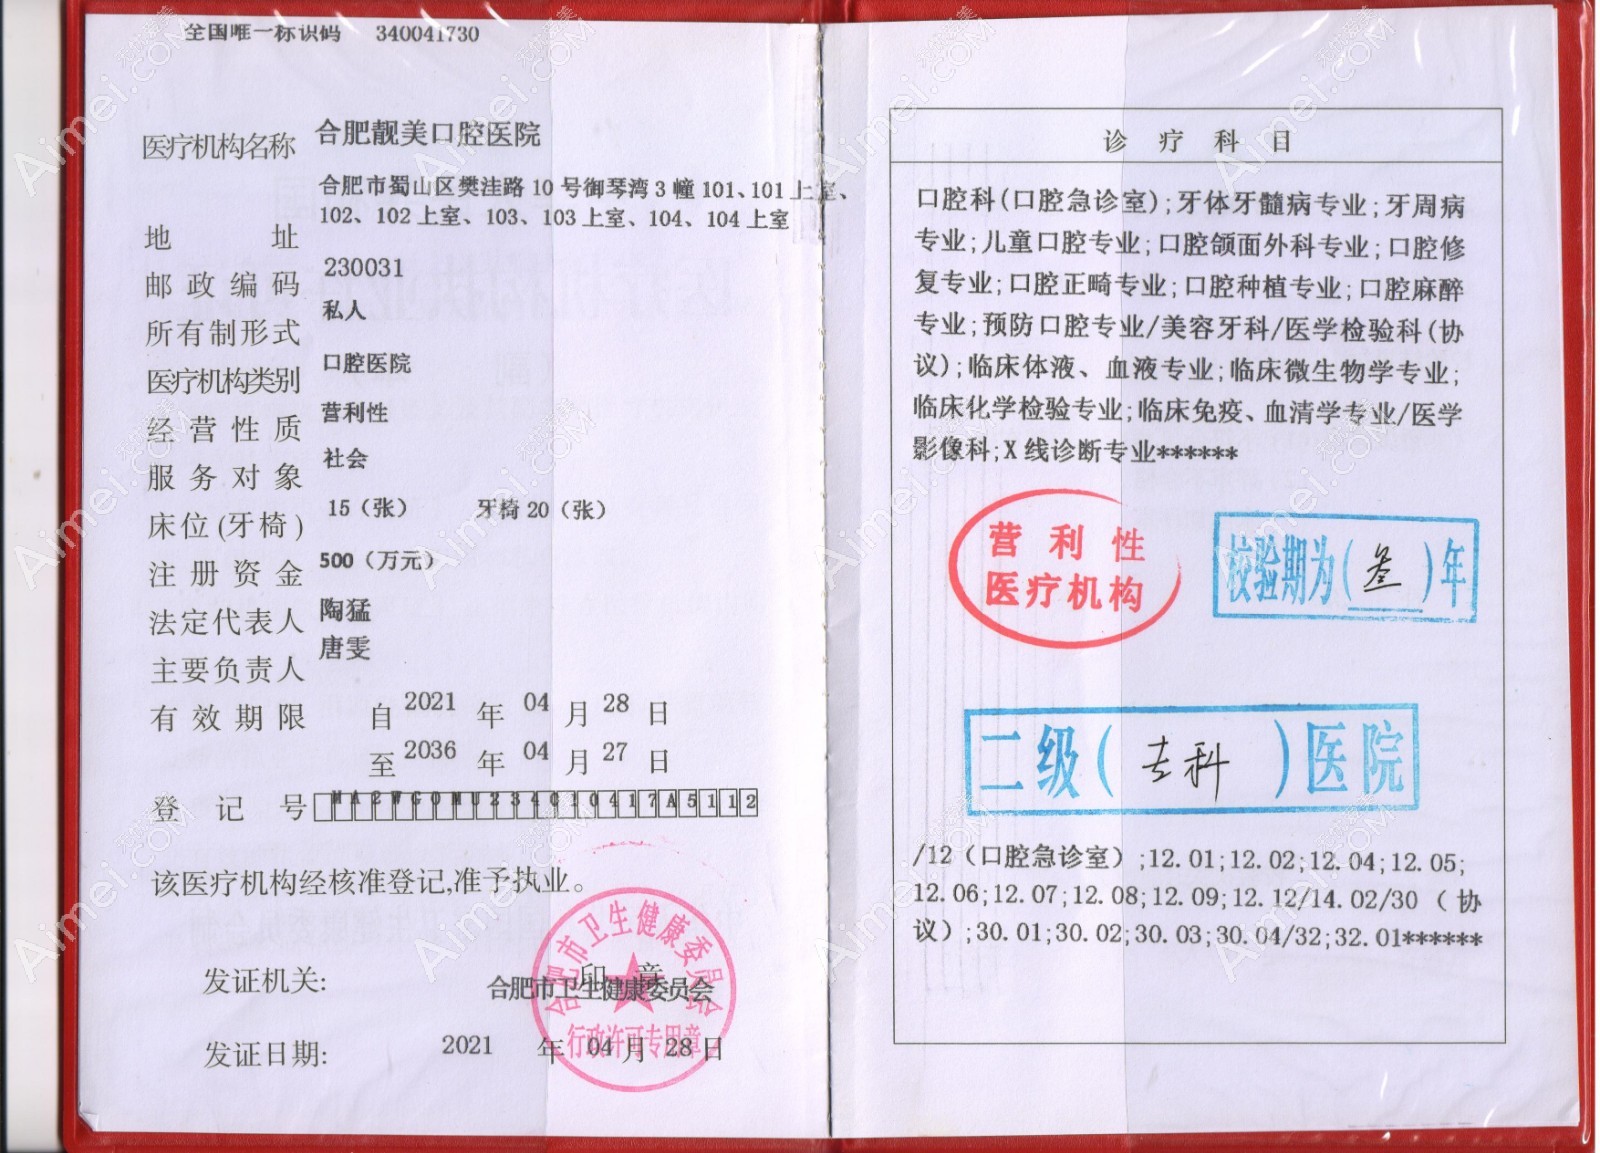 全国唯一标识码 340041730
医疗机构名称 合肥靓美口腔医院
合肥市蜀山区樊洼路 10 号御琴湾 3 幢 101、101 上室、
102、102 上室、103、103 上室、104、104 上室
地址
邮政编码 230031
所有制形式 私人
医疗机构类别 口腔医院
经营性质 营利性
服务对象 社会
床位(牙椅) 15（张） 牙椅 20（张）
注册资金 500（万元）
法定代表人 陶猛
主要负责人 唐雯
有效期限 自 2021 年 04 月 28 日
至 2036 年 04 月 27 日
登记号
该医疗机构经核准登记,准予执业。
发证机关: 合肥市卫生健康委员会
印章
合肥市卫生健康委员会
行政许可专用章
发证日期: 2021 年 04 月 28 日
诊疗科目
口腔科(口腔急诊室);牙体牙髓病专业;牙周病
专业;儿童口腔专业;口腔颌面外科专业;口腔修
复专业;口腔正畸专业;口腔种植专业;口腔麻醉
专业;预防口腔专业/美容牙科/医学检验科(协
议);临床体液、血液专业;临床微生物学专业;
临床化学检验专业;临床免疫、血清学专业/医学
影像科;X 线诊断专业******
营利性
医疗机构
校验期为(叁)年
二级(专科)医院
/12（口腔急诊室）;12.01;12.02;12.04;12.05;
12.06;12.07;12.08;12.09;12.12/14.02/30（协
议）;30.01;30.02;30.03;30.04/32;32.01******
Aimei.COM